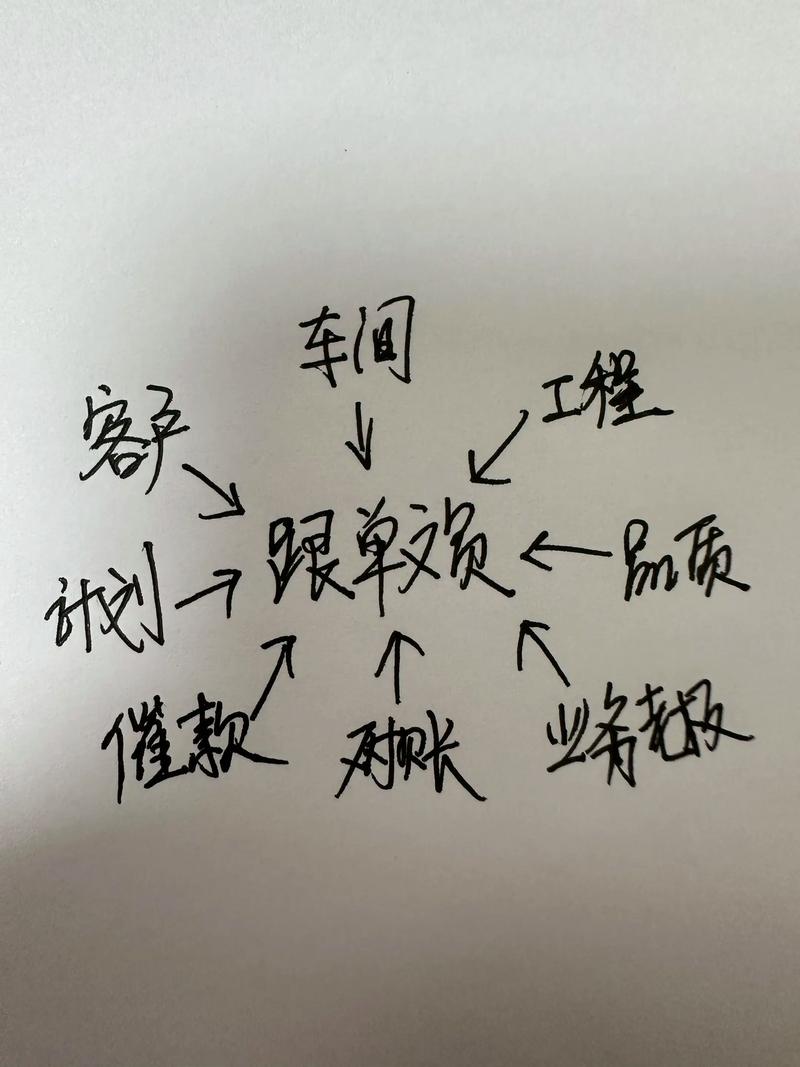 车间
工程
客户
跟单文员
品质
计划
催款
对账
业务老板